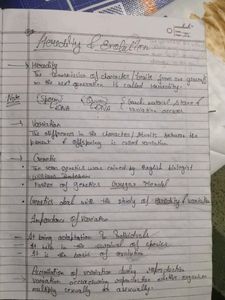 Heredity & Evolution
→ Heredity
The transmission of character / traits from one generation
to the next generation is called
Note (Sperm) (Ovum)
DNA DNA
variation occurs
→ Variation
The difference in the character / traits between the
parent & offspring is called variation.
→ Genetic
The term genetics was coined by English biologist
William Bateson
• Father of genetics Gregor Mendel
• Genetics deal with the study of Heredity & variation
Importance of Variation
→ It bring adaptation in individuals
→ It help in the survival of species
→ It is the basis of evolution
Accumulation of variation during reproduction
variation occurs during reproduction organism
multiply sexually or asexually